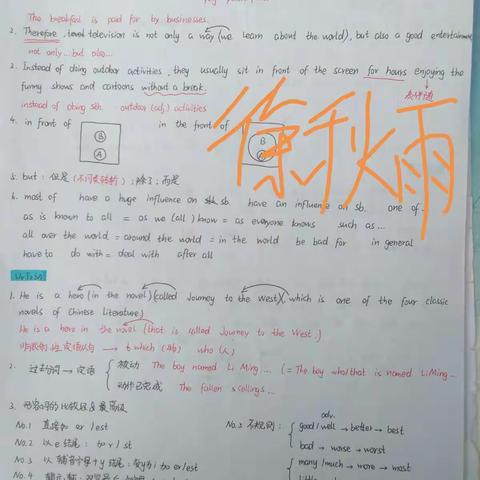 The breakfast is paid for by businesses.
2. Therefore, television is not only a way (we learn about the world), but also a good entertainment
not only...but also...
2. Instead of doing outdoor activities, they usually sit in front of the screen for hours enjoying the
funny shows and cartoons without a break.
instead of doing sth. outdoor (adj.) activities
4. in front of B A in the front of B
徐秋雨
5. but: 但是 (不同类转折); 除了; 而是
6. most of have a huge influence on sb. have an influence on sb. one of
as is known to all = as we (all) know = as everyone knows such as...
all over the world = around the world = in the world be bad for in general
have to do with = deal with after all
1. He is a hero (in the novel) (called Journey to the West) (which is one of the four classic
novels of Chinese Literature)
He is a hero in the novel (that is called Journey to the West.)
定语从句 → which (物) who (人)
2. 过去分词 → 定语 被动 The boy named Li Ming... (= The boy who/that is named Li Ming...
动作已完成 The fallen
3. 形容词的比较级&最高级
No.1 直接加 er / est
No.2 以 e 结尾: 加 r / st
No.3 以辅音字母+y结尾: 变y为i加er/est
No.4
No.3 不规则:
adv.
good/well → better → best
bad → worse → worst
many/much → more → most